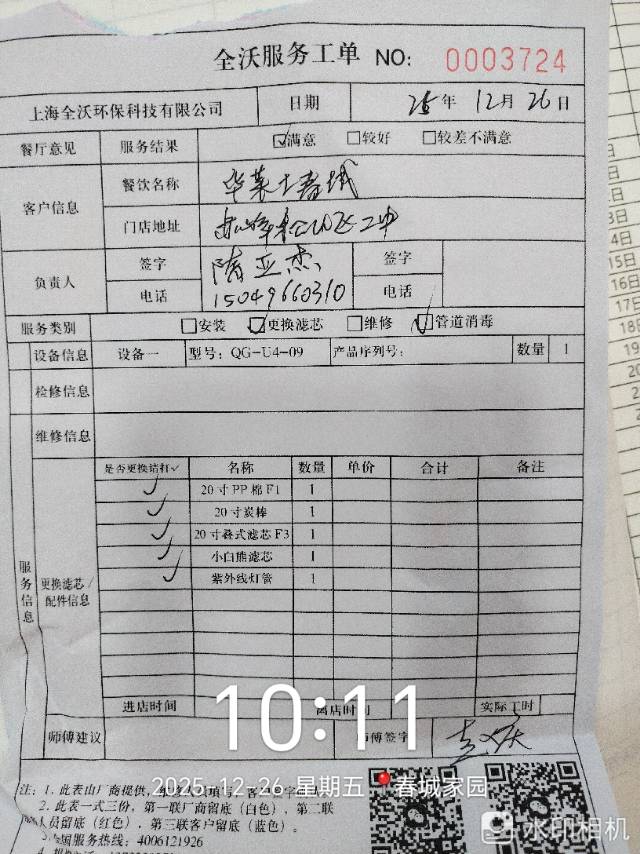 全沃服务工单 NO: 0003724
上海全沃环保科技有限公司 日期 25年 12月 26日
餐厅意见 服务结果 ☑满意 □较好 □较差不满意
客户信息 餐饮名称 华莱士春城
门店地址
负责人 签字 隋亚杰 签字
电话 15049660310 电话
服务类别 □安装 ☑更换滤芯 □维修 ☑管道消毒
设备信息 设备一 型号: QG-U4-09 产品序列号: 数量 1
检修信息
维修信息
服务信息 更换滤芯/配件信息 是否更换请打✓ 名称 数量 单价 合计 备注
✓ 20寸PP棉F1 1
✓ 20寸炭棒 1
✓ 20寸叠式滤芯F3 1
✓ 小白熊滤芯 1
✓ 紫外线灯管 1
进店时间 离店时间 实际工时
10:11
师傅建议 师傅签字
2025-12-26 星期五 春城家园
注: 1. 此表由厂商提供,
2. 此表一式三份, 第一联厂商留底(白色), 第二联
人员留底(红色), 第三联客户留底(蓝色)。
3. 全国服务热线: 4006121926
水印相机